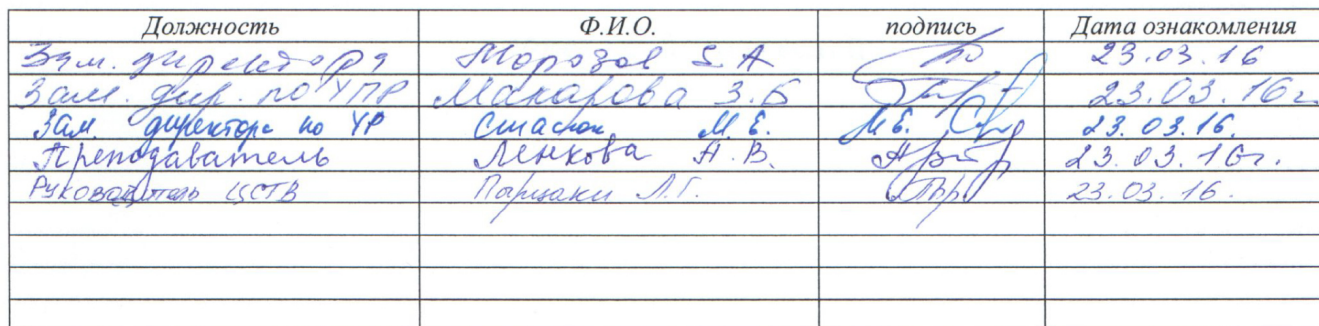 Должность Ф.И.О. подпись Дата ознакомления
Зам. директора Морозов 23.03.16
Зам. дир. по УПР Макарова З.Б 23.03.16г.
Зам. директора по УР М.Е. М.Е. 23.03.16.
Преподаватель Ленкова А.В. 23.03.16г.
Руководитель ЦСТВ Л.Г. 23.03.16.